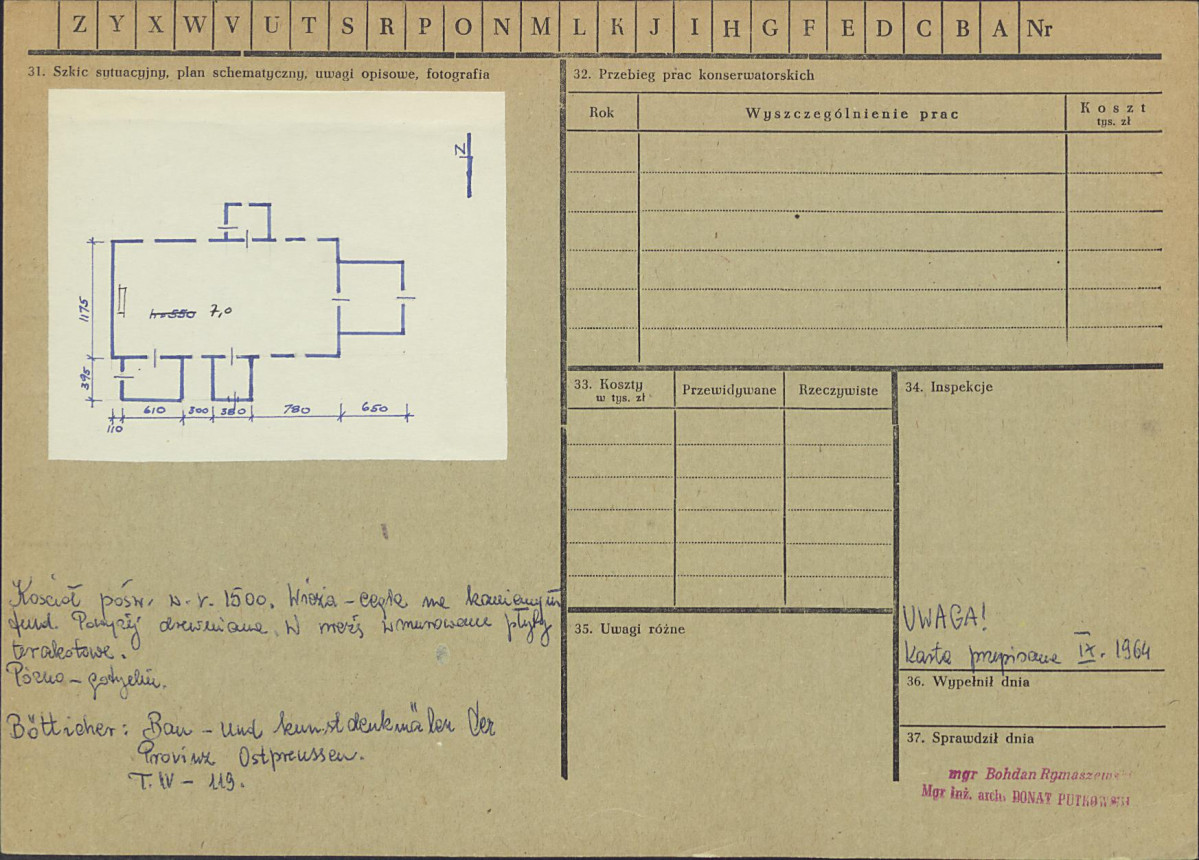 Z Y X W V U T S R P O N M L K J I H G F E D C B A Nr
31. Szkic sytuacyjny, plan schematyczny, uwagi opisowe, fotografia
N
1175
395
h=550 7,0
110
610
300
380
780
650
Kościół pośw. w r. 1500. Wieża – cegła na kamiennym
fund. Powyżej drewniana. W wieżę wmurowane płytki
terakotowe.
Późno-gotycki.
Bötticher: Bau- und Kunstdenkmäler der
Provinz Ostpreussen.
T. IV – 119.
32. Przebieg prac konserwatorskich
Rok
Wyszczególnienie prac
Koszt
tys. zł
33. Koszty
w tys. zł
Przewidywane
Rzeczywiste
34. Inspekcje
UWAGA!
Karta przepisana IX. 1964
35. Uwagi różne
36. Wypełnił dnia
37. Sprawdził dnia
mgr Bohdan Rymaszewski
Mgr inż. arch. DONAT PUTKOWSKI